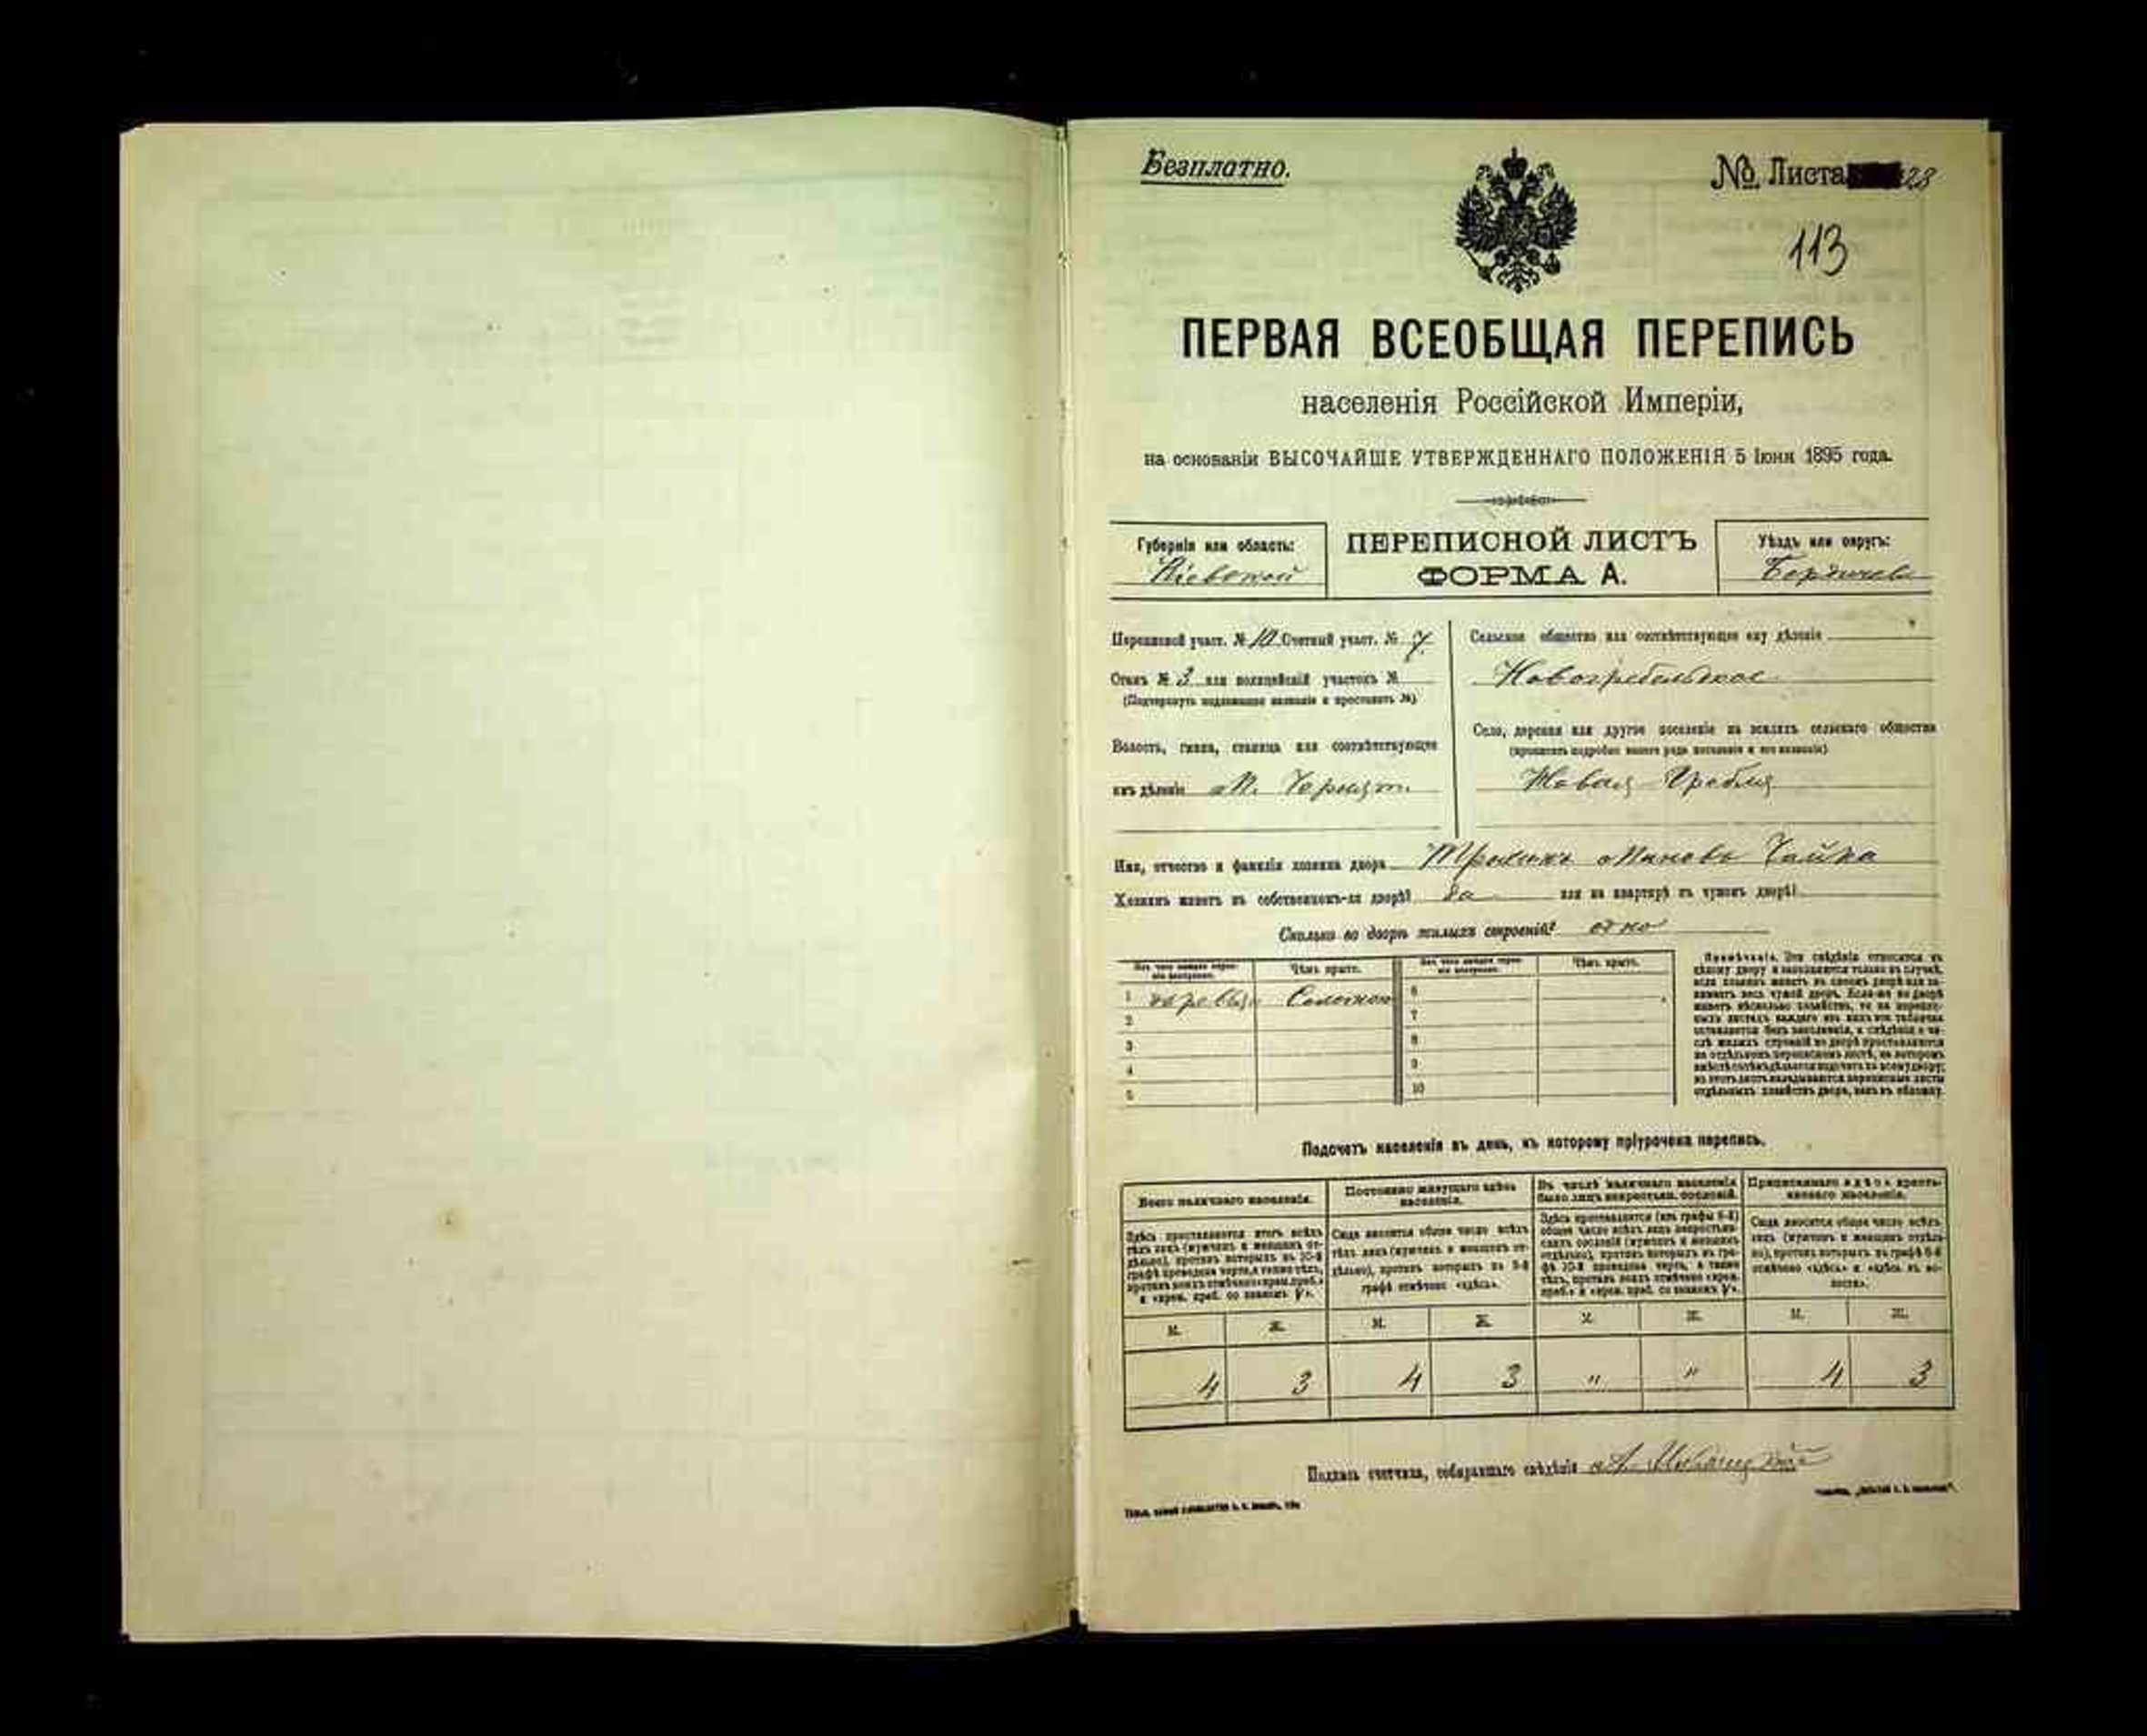 Безплатно.
№ Листа 28
113
ПЕРВАЯ ВСЕОБЩАЯ ПЕРЕПИСЬ
населенія Россійской Имперіи,
на основаніи ВЫСОЧАЙШЕ УТВЕРЖДЕННАГО ПОЛОЖЕНІЯ 5 Іюня 1895 года.
Губернія или область:
Кіевской
ПЕРЕПИСНОЙ ЛИСТЪ
ФОРМА А.
Уѣздъ или округъ:
Бердичев
Переписной участ. № 10 Счетный участ. № 7
Станъ № 3 или полицейскій участокъ №
(Подчеркнуть подлежащее названіе и проставить №)
Волость, гмина, станица или соотвѣтствующее
имъ дѣленіе М.
Сельское общество или соотвѣтствующее ему дѣленіе
Новогребельское
Село, деревня или другое поселеніе на земляхъ сельскаго общества
(прописать подробно какого рода поселеніе и его названіе)
Новая Гребля
Имя, отчество и фамилія хозяина двора Чайка
Хозяинъ живетъ въ собственномъ-ли дворѣ? да или на квартирѣ въ чужомъ дворѣ?
Сколько во дворѣ жилыхъ строеній? одно
Чѣмъ крыто.
Чѣмъ крыто.
1 Соломою
2
3
4
5
6
7
8
9
10
Примѣчаніе. Эти свѣдѣнія относятся къ
цѣлому двору и заполняются только въ случаѣ,
если хозяинъ живетъ въ своемъ дворѣ или за-
нимаетъ весь чужой дворъ. Если-же во дворѣ
живетъ нѣсколько хозяйствъ, то на перепис-
ныхъ листахъ каждаго изъ нихъ эти таблички
оставляются безъ заполненія, а свѣдѣнія о чи-
слѣ жилыхъ строеній во дворѣ проставляются
на отдѣльномъ переписномъ листѣ, на которомъ
вмѣстѣ съ тѣмъ дѣлается подсчетъ по всему двору;
въ этотъ листъ вкладываются переписные листы
отдѣльныхъ хозяйствъ двора, какъ въ обложку.
Подсчетъ населенія въ день, къ которому пріурочена перепись.
Всего наличнаго населенія.
Постоянно живущаго здѣсь
населенія.
Въ числѣ наличнаго населенія
было лицъ некрестьян. сословій.
Приписаннаго здѣсь кресть-
янскаго населенія.
Здѣсь проставляется итогъ всѣхъ
тѣхъ лицъ (мужчинъ и женщинъ от-
дѣльно), противъ которыхъ въ 10-й
графѣ проведена черта, а также тѣхъ,
противъ коихъ отмѣчено «врем. преб.»
и «врем. преб. со знакомъ
Сюда вносится общее число всѣхъ
тѣхъ лицъ (мужчинъ и женщинъ от-
дѣльно), противъ которыхъ въ 9-й
графѣ отмѣчено «здѣсь».
Здѣсь проставляется (изъ графы 6-й)
общее число всѣхъ лицъ некрестьян-
скихъ сословій (мужчинъ и женщинъ
отдѣльно), противъ которыхъ въ гра-
фѣ 10-й проведена черта, а также
тѣхъ, противъ коихъ отмѣчено «врем.
преб.» и «врем. преб. со знакомъ
Сюда вносится общее число всѣхъ
лицъ (мужчинъ и женщинъ отдѣль-
но), противъ которыхъ въ графѣ 8-й
отмѣчено «здѣсь» и «здѣсь въ во-
лости».
М. Ж. М. Ж. М. Ж. М. Ж.
4 3 4 3 " " 4 3
Подпись счетчика, собиравшаго свѣдѣнія